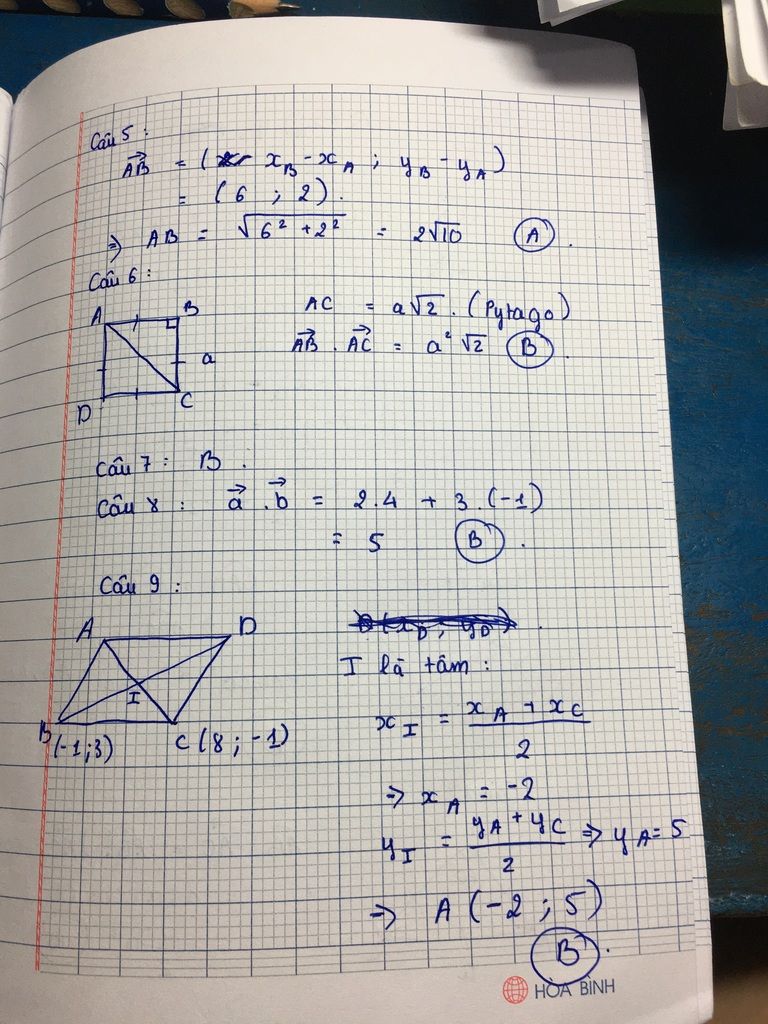 Câu 5 :
AB = ( x_B - x_A ; y_B - y_A )
= ( 6 ; 2 ) .
⇒ AB = √(6² + 2²) = 2√10 (A) .
Câu 6 :
A B
AC = a√2 . (Pytago)
AB . AC = a²√2 (B) .
a
D C
Câu 7 : B .
Câu 8 : a . b = 2.4 + 3.(-1)
= 5 (B) .
Câu 9 :
A D
I là tâm :
I
B (-1;3) C (8 ; -1)
x_I = (x_A + x_C)/2
⇒ x_A = -2
y_I = (y_A + y_C)/2 ⇒ y_A = 5
⇒ A (-2 ; 5)
(B) .
HÒA BÌNH